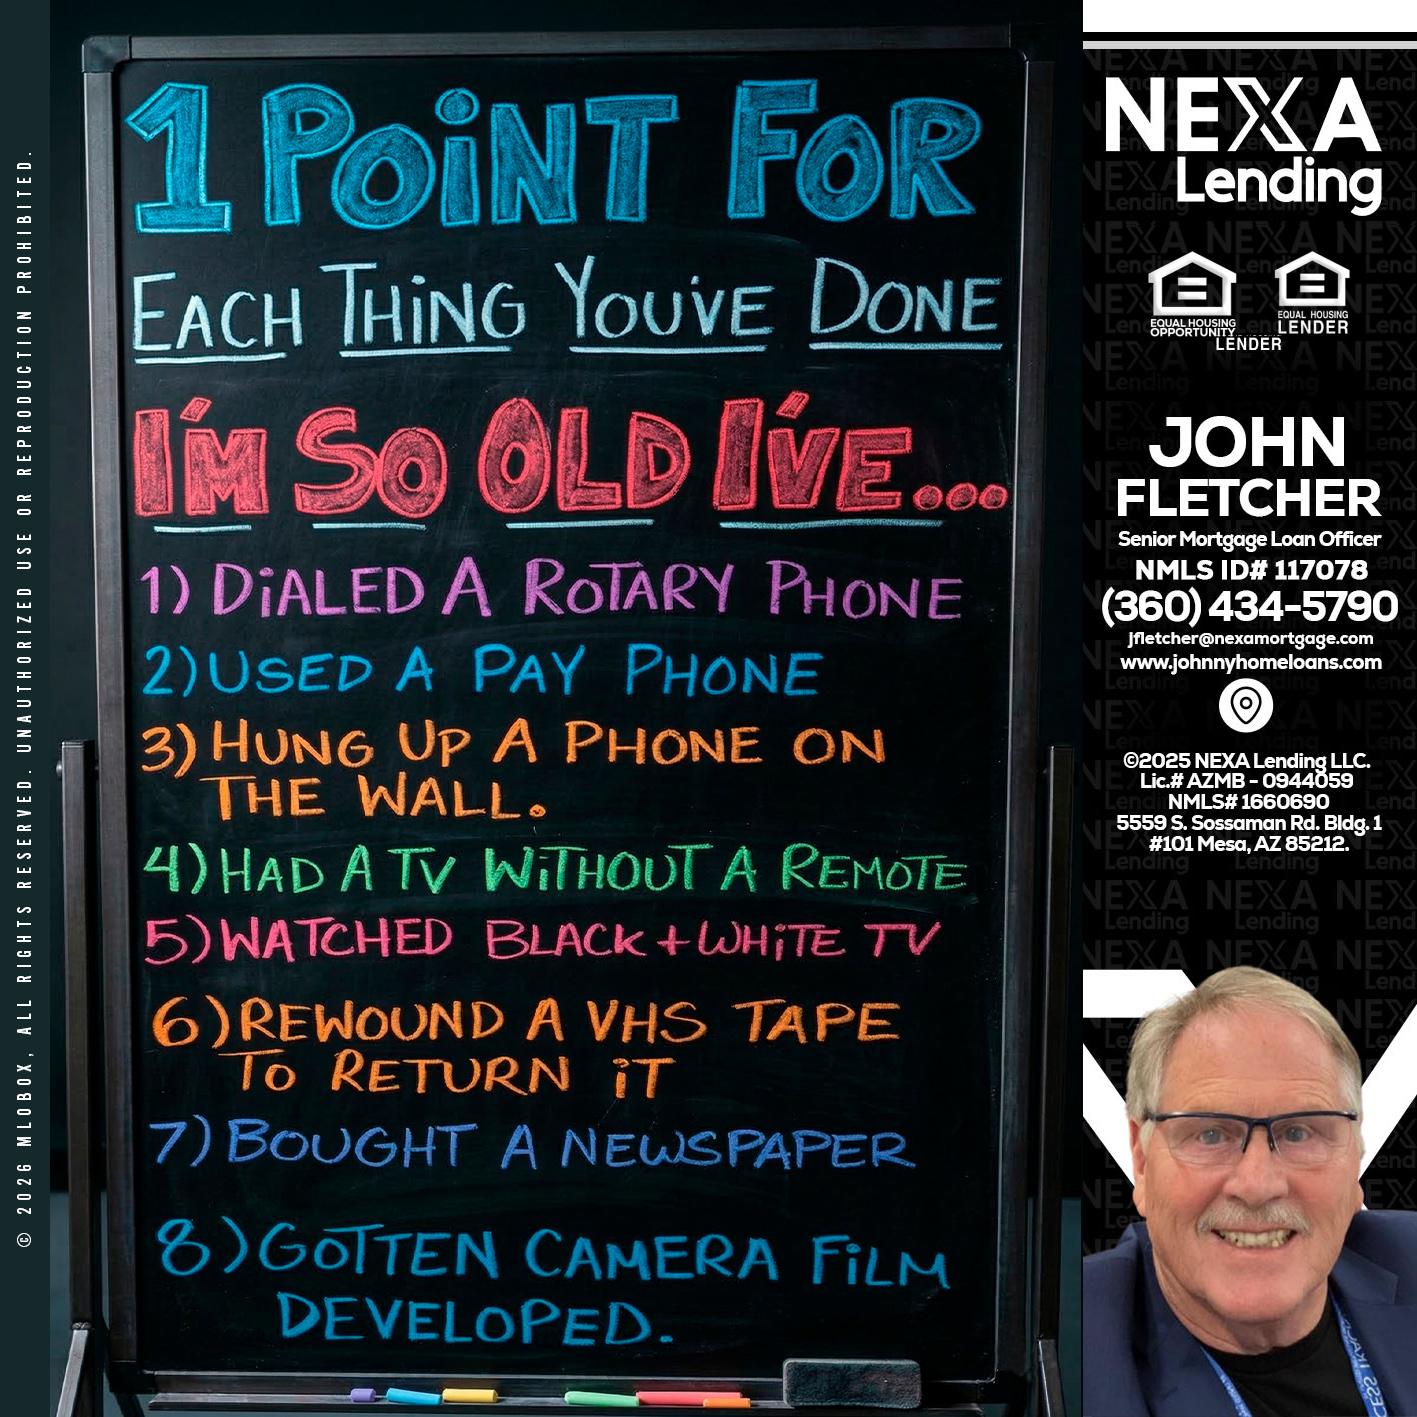 1 POINT FOR
EACH THING YOU'VE DONE
I'M SO OLD I'VE...
1) DIALED A ROTARY PHONE
2) USED A PAY PHONE
3) HUNG UP A PHONE ON
THE WALL.
4) HAD A TV WITHOUT A REMOTE
5) WATCHED BLACK + WHITE TV
6) REWOUND A VHS TAPE
TO RETURN IT
7) BOUGHT A NEWSPAPER
8) GOTTEN CAMERA FILM
DEVELOPED.
© 2026 MLOBOX, ALL RIGHTS RESERVED. UNAUTHORIZED USE OR REPRODUCTION PROHIBITED.
NEXA
Lending
EQUAL HOUSING
OPPORTUNITY
LENDER
EQUAL HOUSING
LENDER
JOHN
FLETCHER
Senior Mortgage Loan Officer
NMLS ID# 117078
(360) 434-5790
jfletcher@nexamortgage.com
www.johnnyhomeloans.com
©2025 NEXA Lending LLC.
Lic.# AZMB - 0944059
NMLS# 1660690
5559 S. Sossaman Rd. Bldg. 1
#101 Mesa, AZ 85212.